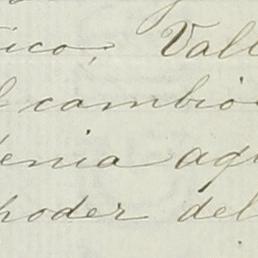 ico, Vall
l cambio
enia aq
poder del